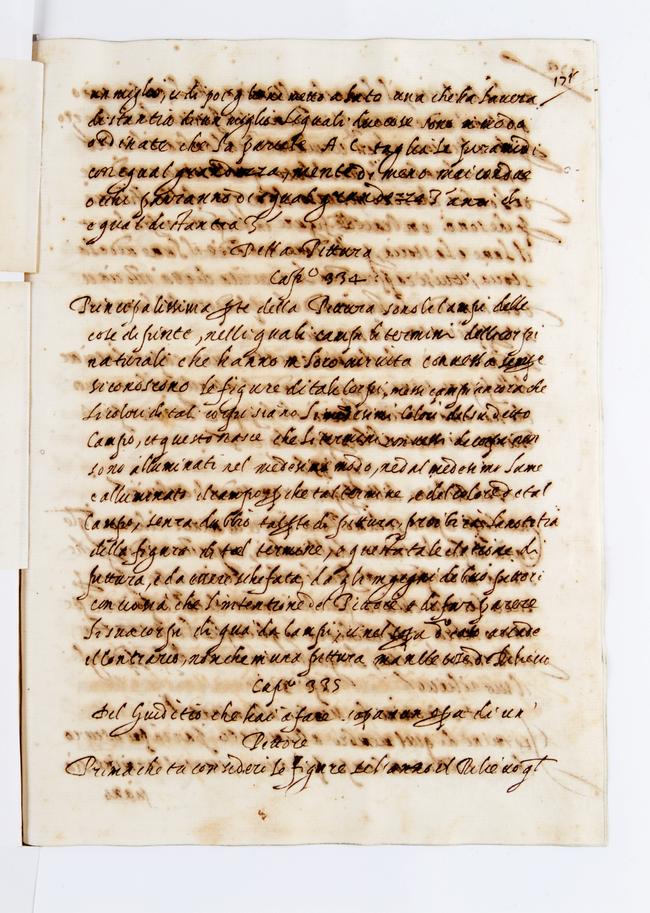 un miglio, et di poi
distantia di un miglio le quali due cose sono in modo
ordinate che la parete A. C. taglia le piramidi
con egual grandezza,
ochi paranno di equal grandezza
equal distantia
Della Pittura
Cap.º 334
Principalissima pte della Pittura sono li campi delle
cose dipinte, nelli quali campi li termini delli corpi
naturali che hanno in loro curvita convessa sempre
si conoscono le figure di tal corpi, ne si campi ancora che
li colori di tal corpi siano li medesimi colori del sudetto
Campo, et questo nasce che li termini convessi de corpi non
sono alluminati nel medesimo modo, ne dal medesimo lume
e alluminato il campo pche tal termine
Campo, senza dubbio tal pte di pittura, proibira la notitia
della figura di tal termine, e questa tale eletione di
pittura, e da essere schifata, da gli ingegni de buo pittori
con cio sia che l'intentione del Pittore e di far parere
li sua corpi di qua da campi, et nel sopa d.º caso accade
il contrario, non che in una pittura ma nelle cose di Rilievo
Cap.º 335
Del Giuditio che hai a fare sopa un opa di un
Pittore
Prima che tu consideri le figure se l'anno il Rilievo